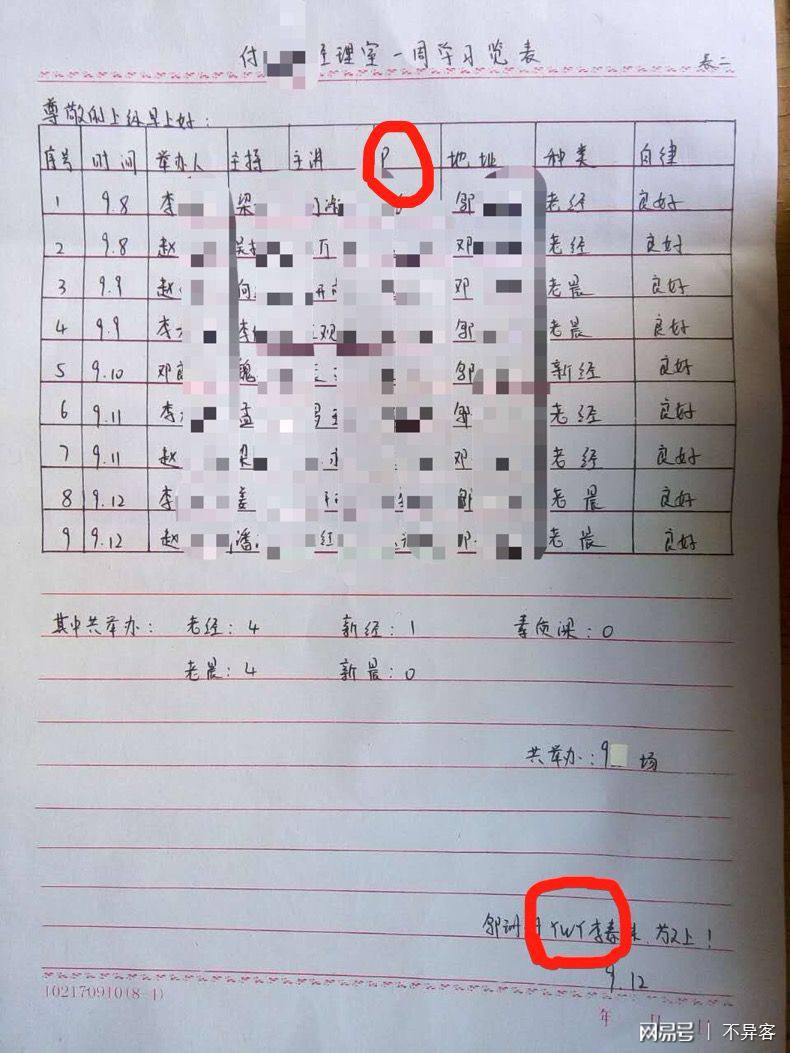 付 经理室一周学习览表
表二
尊敬的上经早上好：
序号 时间 举办人 主持 主讲 P 地址 种类 自律
1 9.8 李 梁 邹 老经 良好
2 9.8 赵 吴 万 邓 老经 良好
3 9.9 赵 向 邓 老晨 良好
4 9.9 李 李 观 邹 老晨 良好
5 9.10 邓良 魏 邹 新经 良好
6 9.11 李 孟 邹 老经 良好
7 9.11 赵 梁 邓 老经 良好
8 9.12 李 姜 邹 老晨 良好
9 9.12 赵 潘 邓 老晨 良好
其中共举办： 老经：4 新经：1 素质课：0
老晨：4 新晨：0
共举办：9 场
邹 YWY李春 敬上！
9.12
10217091018-4)
年 月 日
网易号 | 不异客